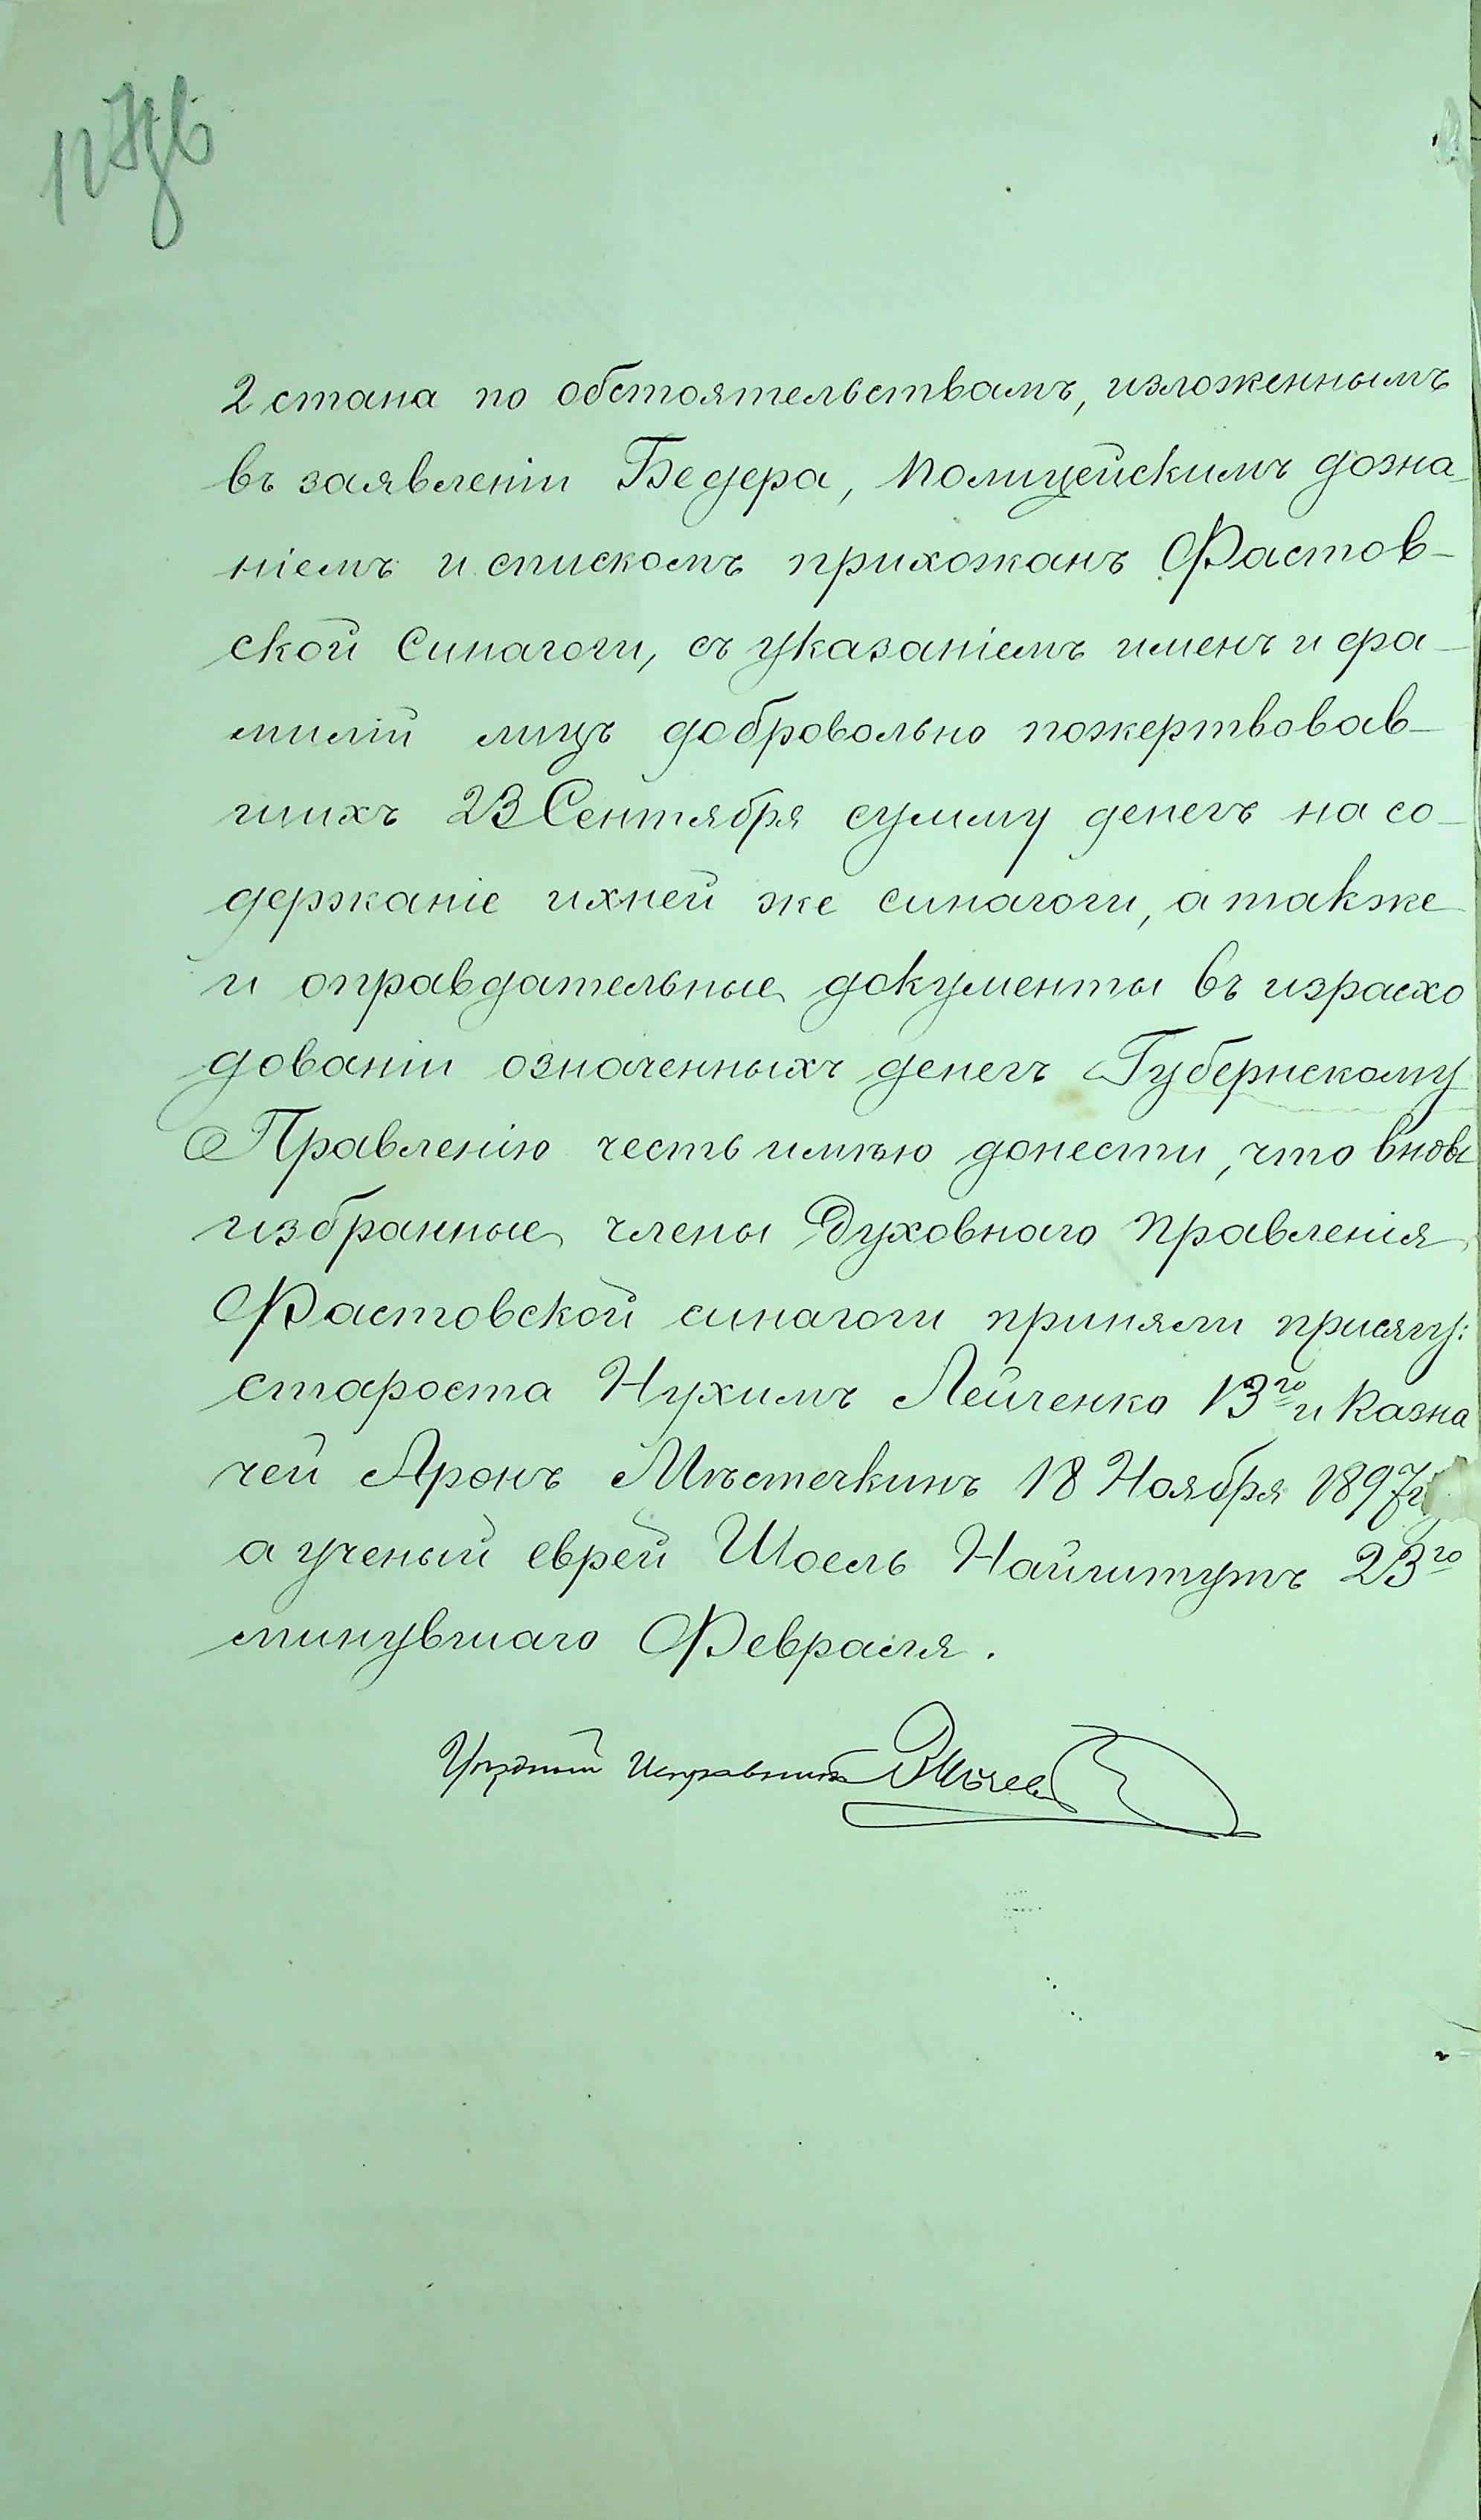 2 стана по обстоятельствамъ, изложеннымъ
въ заявленіи Бедера, полицейскимъ дозна
ніемъ и спискомъ прихожанъ Фастов-
ской Синагоги, съ указаніемъ именъ и фа-
милій лицъ добровольно пожертвовав-
шихъ 23 Сентября сумму денегъ на со-
держаніе ихней же синагоги, а также
и оправдательные документы въ израсхо
дованіи означенныхъ денегъ Губернскому
Правленію честь имѣю донести, что вновь
избранные члены Духовнаго Правленія
Фастовской синагоги приняли присягу:
староста Нухимъ Лейченко 13го и Казна
чей Аронъ Мѣстечкинъ 18 Ноября 1897г
а ученый еврей Шоель Найштутъ 23го
минувшаго Февраля.
Уѣздный Исправникъ